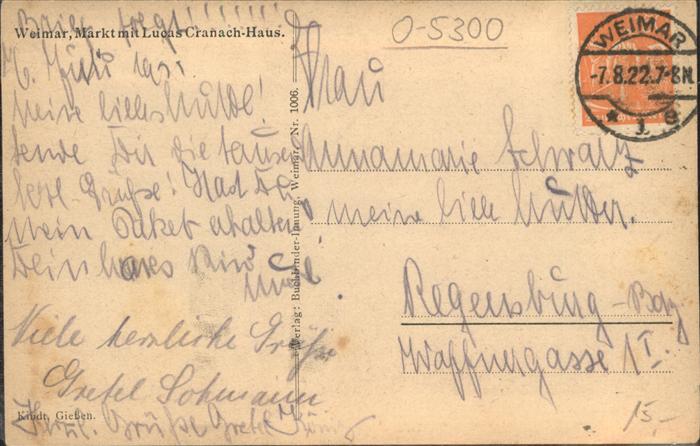 Brief folgt!!!!!!!!
Weimar, Markt mit Lucas Cranach-Haus.
Meine liebe Mutti!
sende Dir die tausend
herzl. Grüße! Hast Du
mein Paket erhalten
Dein
Viele herzliche Grüße
Gretel Lohmann
Herzl. Grüße Gretel König
Kindt, Gießen.
Verlag: Buchbinder-Innung, Weimar. Nr. 1006.
O-5300
WEIMAR
-7.8.22.7-8N.
* 1 e
Frau
Annamarie Schwarz
meine liebe Mutter.
Regensburg - Bay
Waffnergasse 1 I.
15,-